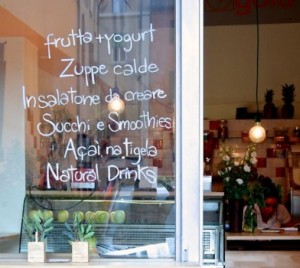 frutta + yogurt
Zuppe calde
Insalatone da creare
Succhi e Smoothies
Açai na tigela
Natural Drinks